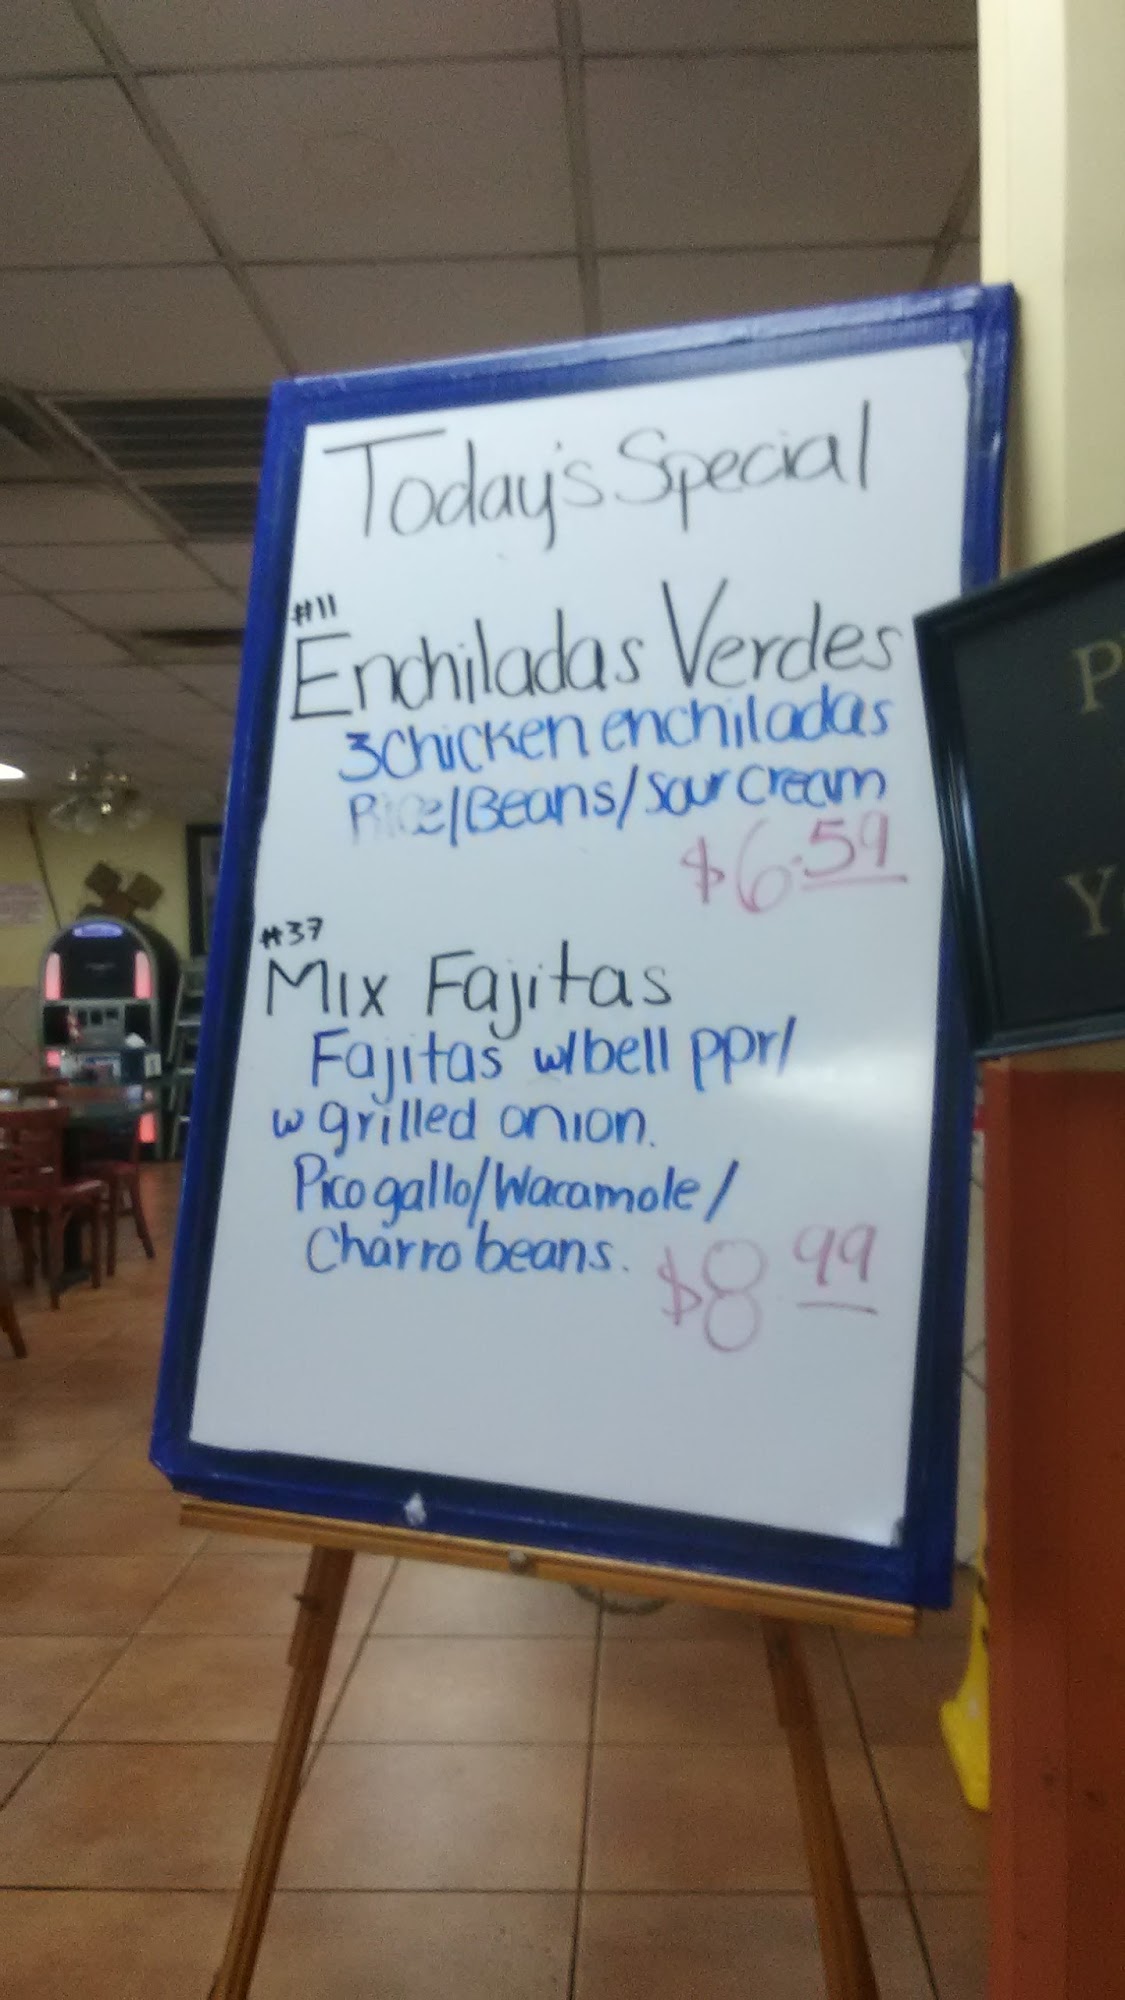 Today's Special
#11
Enchiladas Verdes
3 Chicken enchiladas
Rice/Beans/sour cream
$6.59
#37
Mix Fajitas
Fajitas w/bell ppr/
w grilled onion.
Pico gallo/Wacamole/
Charro beans.
$8 99